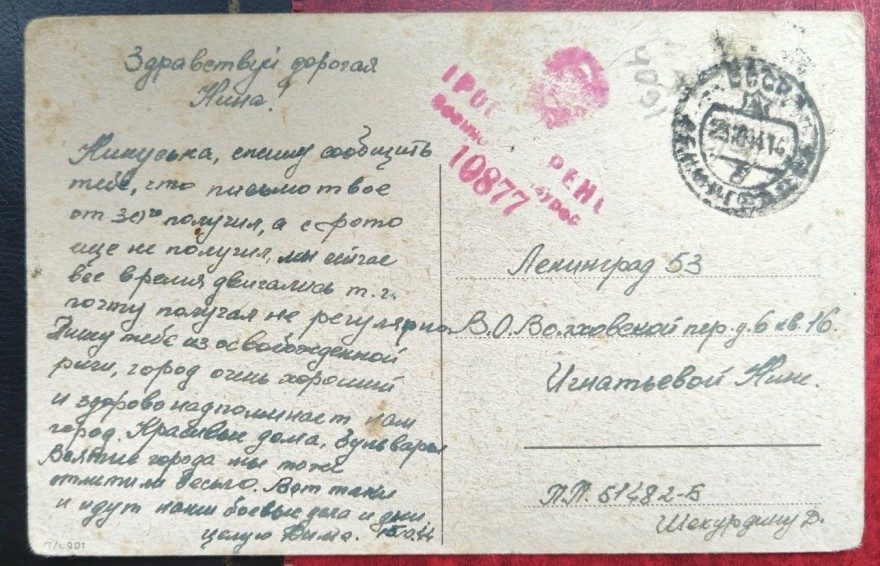 Здравствуй дорогая
Нина!
Нинуська, спешу сообщить
тебе, что письмо твое
от 30го получил, а с фото
еще не получил, мы сейчас
все время двигались т.ч.
почту получал не регулярно.
Пишу тебе из освобожденной
риги, город очень хороший
и здорово надпоминает нам
город. Красивые дома, бульвары
Взятие города мы тоже
отметили весьло. Вот такие
и идут наши боевые дела и дни
целую Дима.
10877
СССР
ЛЕНИНГРАД
Ленинград 53
В.О. Волховской пер. д. 6 кв. 16.
Игнатьевой Нине.
П.П. 51482-Б
Д.